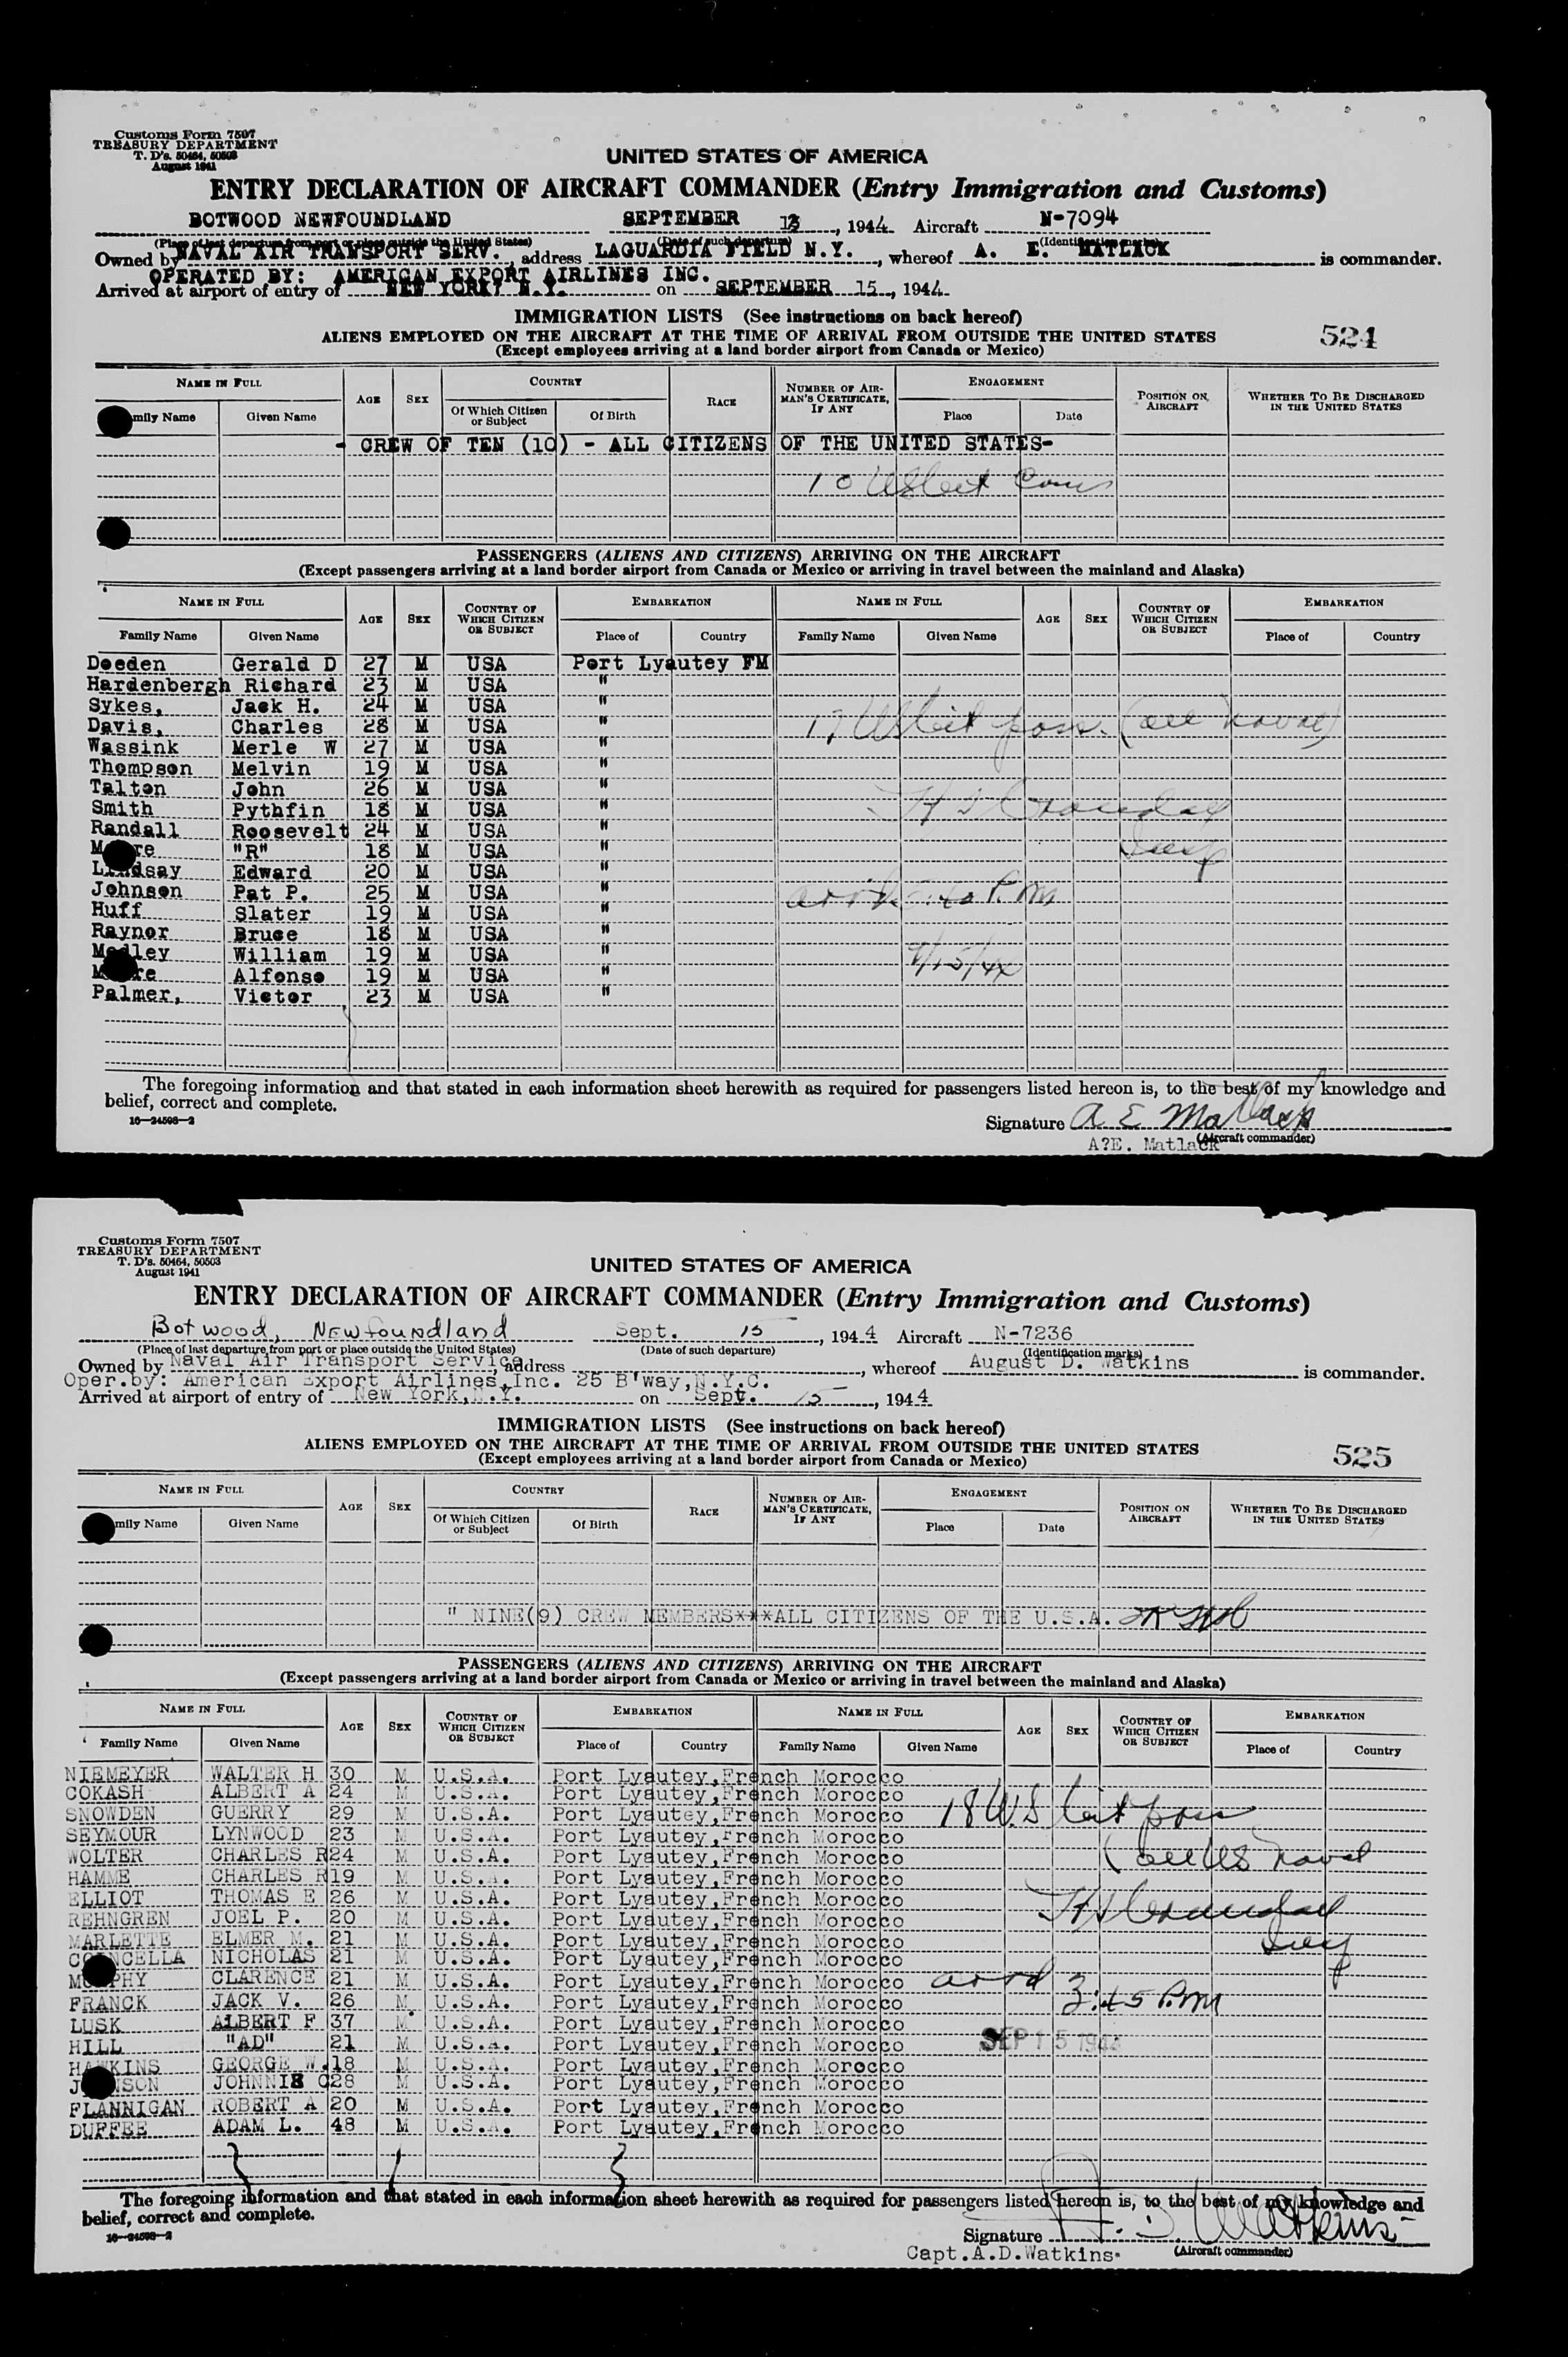 Customs Form 7507
TREASURY DEPARTMENT
T. D's. 50464, 50503
August 1941
UNITED STATES OF AMERICA
ENTRY DECLARATION OF AIRCRAFT COMMANDER (Entry Immigration and Customs)
BOTWOOD NEWFOUNDLAND SEPTEMBER 13, 1944 Aircraft N-7094
(Place of last departure from port or place outside the United States) (Date of such departure) (Identification marks)
Owned by NAVAL AIR TRANSPORT SERV., address LAGUARDIA FIELD N.Y., whereof A. E. MATLACK is commander.
OPERATED BY: AMERICAN EXPORT AIRLINES INC.
Arrived at airport of entry of NEW YORK, N.Y. on SEPTEMBER 15, 1944
IMMIGRATION LISTS (See instructions on back hereof)
ALIENS EMPLOYED ON THE AIRCRAFT AT THE TIME OF ARRIVAL FROM OUTSIDE THE UNITED STATES
524
(Except employees arriving at a land border airport from Canada or Mexico)
NAME IN FULL AGE SEX COUNTRY RACE NUMBER OF AIRMAN'S CERTIFICATE, IF ANY ENGAGEMENT POSITION ON AIRCRAFT WHETHER TO BE DISCHARGED IN THE UNITED STATES
mily Name Given Name Of Which Citizen or Subject Of Birth Place Date
- CREW OF TEN (10) - ALL CITIZENS OF THE UNITED STATES-
10 US
PASSENGERS (ALIENS AND CITIZENS) ARRIVING ON THE AIRCRAFT
(Except passengers arriving at a land border airport from Canada or Mexico or arriving in travel between the mainland and Alaska)
NAME IN FULL AGE SEX COUNTRY OF WHICH CITIZEN OR SUBJECT EMBARKATION NAME IN FULL AGE SEX COUNTRY OF WHICH CITIZEN OR SUBJECT EMBARKATION
Family Name Given Name Place of Country Family Name Given Name Place of Country
Deeden Gerald D 27 M USA Port Lyautey FM
Hardenbergh Richard 23 M USA "
Sykes, Jack H. 24 M USA "
Davis, Charles 28 M USA " 17 US cit pass. (all naval)
Wassink Merle W 27 M USA "
Thompson Melvin 19 M USA "
Talton John 26 M USA "
Smith Pythfin 18 M USA " H S Crandall
Randall Roosevelt 24 M USA "
M re "R" 18 M USA " Insp
L dsay Edward 20 M USA "
Johnson Pat P. 25 M USA " P.M
Huff Slater 19 M USA "
Raynor Bruce 18 M USA "
Medley William 19 M USA " 9/15/44
M re Alfonso 19 M USA "
Palmer, Victor 23 M USA "
The foregoing information and that stated in each information sheet herewith as required for passengers listed hereon is, to the best of my knowledge and
belief, correct and complete.
16—24598—2
Signature A E Matlack
(Aircraft commander)
A?E. Matlack
Customs Form 7507
TREASURY DEPARTMENT
T. D's. 50464, 50503
August 1941
UNITED STATES OF AMERICA
ENTRY DECLARATION OF AIRCRAFT COMMANDER (Entry Immigration and Customs)
Botwood, Newfoundland Sept. 15, 1944 Aircraft N-7236
(Place of last departure from port or place outside the United States) (Date of such departure) (Identification marks)
Owned by Naval Air Transport Service, address , whereof August D. Watkins is commander.
Oper.by: American Export Airlines,Inc. 25 B'way,N.Y.C.
Arrived at airport of entry of New York,N.Y. on Sept. 15, 1944
IMMIGRATION LISTS (See instructions on back hereof)
ALIENS EMPLOYED ON THE AIRCRAFT AT THE TIME OF ARRIVAL FROM OUTSIDE THE UNITED STATES
525
(Except employees arriving at a land border airport from Canada or Mexico)
NAME IN FULL AGE SEX COUNTRY RACE NUMBER OF AIRMAN'S CERTIFICATE, IF ANY ENGAGEMENT POSITION ON AIRCRAFT WHETHER TO BE DISCHARGED IN THE UNITED STATES
mily Name Given Name Of Which Citizen or Subject Of Birth Place Date
" NINE(9) CREW MEMBERS***ALL CITIZENS OF THE U.S.A.
PASSENGERS (ALIENS AND CITIZENS) ARRIVING ON THE AIRCRAFT
(Except passengers arriving at a land border airport from Canada or Mexico or arriving in travel between the mainland and Alaska)
NAME IN FULL AGE SEX COUNTRY OF WHICH CITIZEN OR SUBJECT EMBARKATION NAME IN FULL AGE SEX COUNTRY OF WHICH CITIZEN OR SUBJECT EMBARKATION
Family Name Given Name Place of Country Family Name Given Name Place of Country
NIEMEYER WALTER H 30 M U.S.A. Port Lyautey,French Morocco
COKASH ALBERT A 24 M U.S.A. Port Lyautey,French Morocco
SNOWDEN GUERRY 29 M U.S.A. Port Lyautey,French Morocco 18 U.S cit pass
SEYMOUR LYNWOOD 23 M U.S.A. Port Lyautey,French Morocco
WOLTER CHARLES R 24 M U.S.A. Port Lyautey,French Morocco (all US naval
HAMME CHARLES R 19 M U.S.A. Port Lyautey,French Morocco
ELLIOT THOMAS E 26 M U.S.A. Port Lyautey,French Morocco H S Crandall
REHNGREN JOEL P. 20 M U.S.A. Port Lyautey,French Morocco
MARLETTE ELMER M. 21 M U.S.A. Port Lyautey,French Morocco Insp
C CELLA NICHOLAS 21 M U.S.A. Port Lyautey,French Morocco
M PHY CLARENCE 21 M U.S.A. Port Lyautey,French Morocco arrd 3:45 P.M
FRANCK JACK V. 26 M U.S.A. Port Lyautey,French Morocco
LUSK ALBERT F 37 M U.S.A. Port Lyautey,French Morocco
HILL "AD" 21 M U.S.A. Port Lyautey,French Morocco SEP 15 1944
HAWKINS GEORGE W. 18 M U.S.A. Port Lyautey,French Morocco
J NSON JOHNNIE C 28 M U.S.A. Port Lyautey,French Morocco
FLANNIGAN ROBERT A 20 M U.S.A. Port Lyautey,French Morocco
DUFFEE ADAM L. 48 M U.S.A. Port Lyautey,French Morocco
The foregoing information and that stated in each information sheet herewith as required for passengers listed hereon is, to the best of my knowledge and
belief, correct and complete.
16—24598—2
Signature A. D. Watkins
(Aircraft commander)
Capt.A.D.Watkins